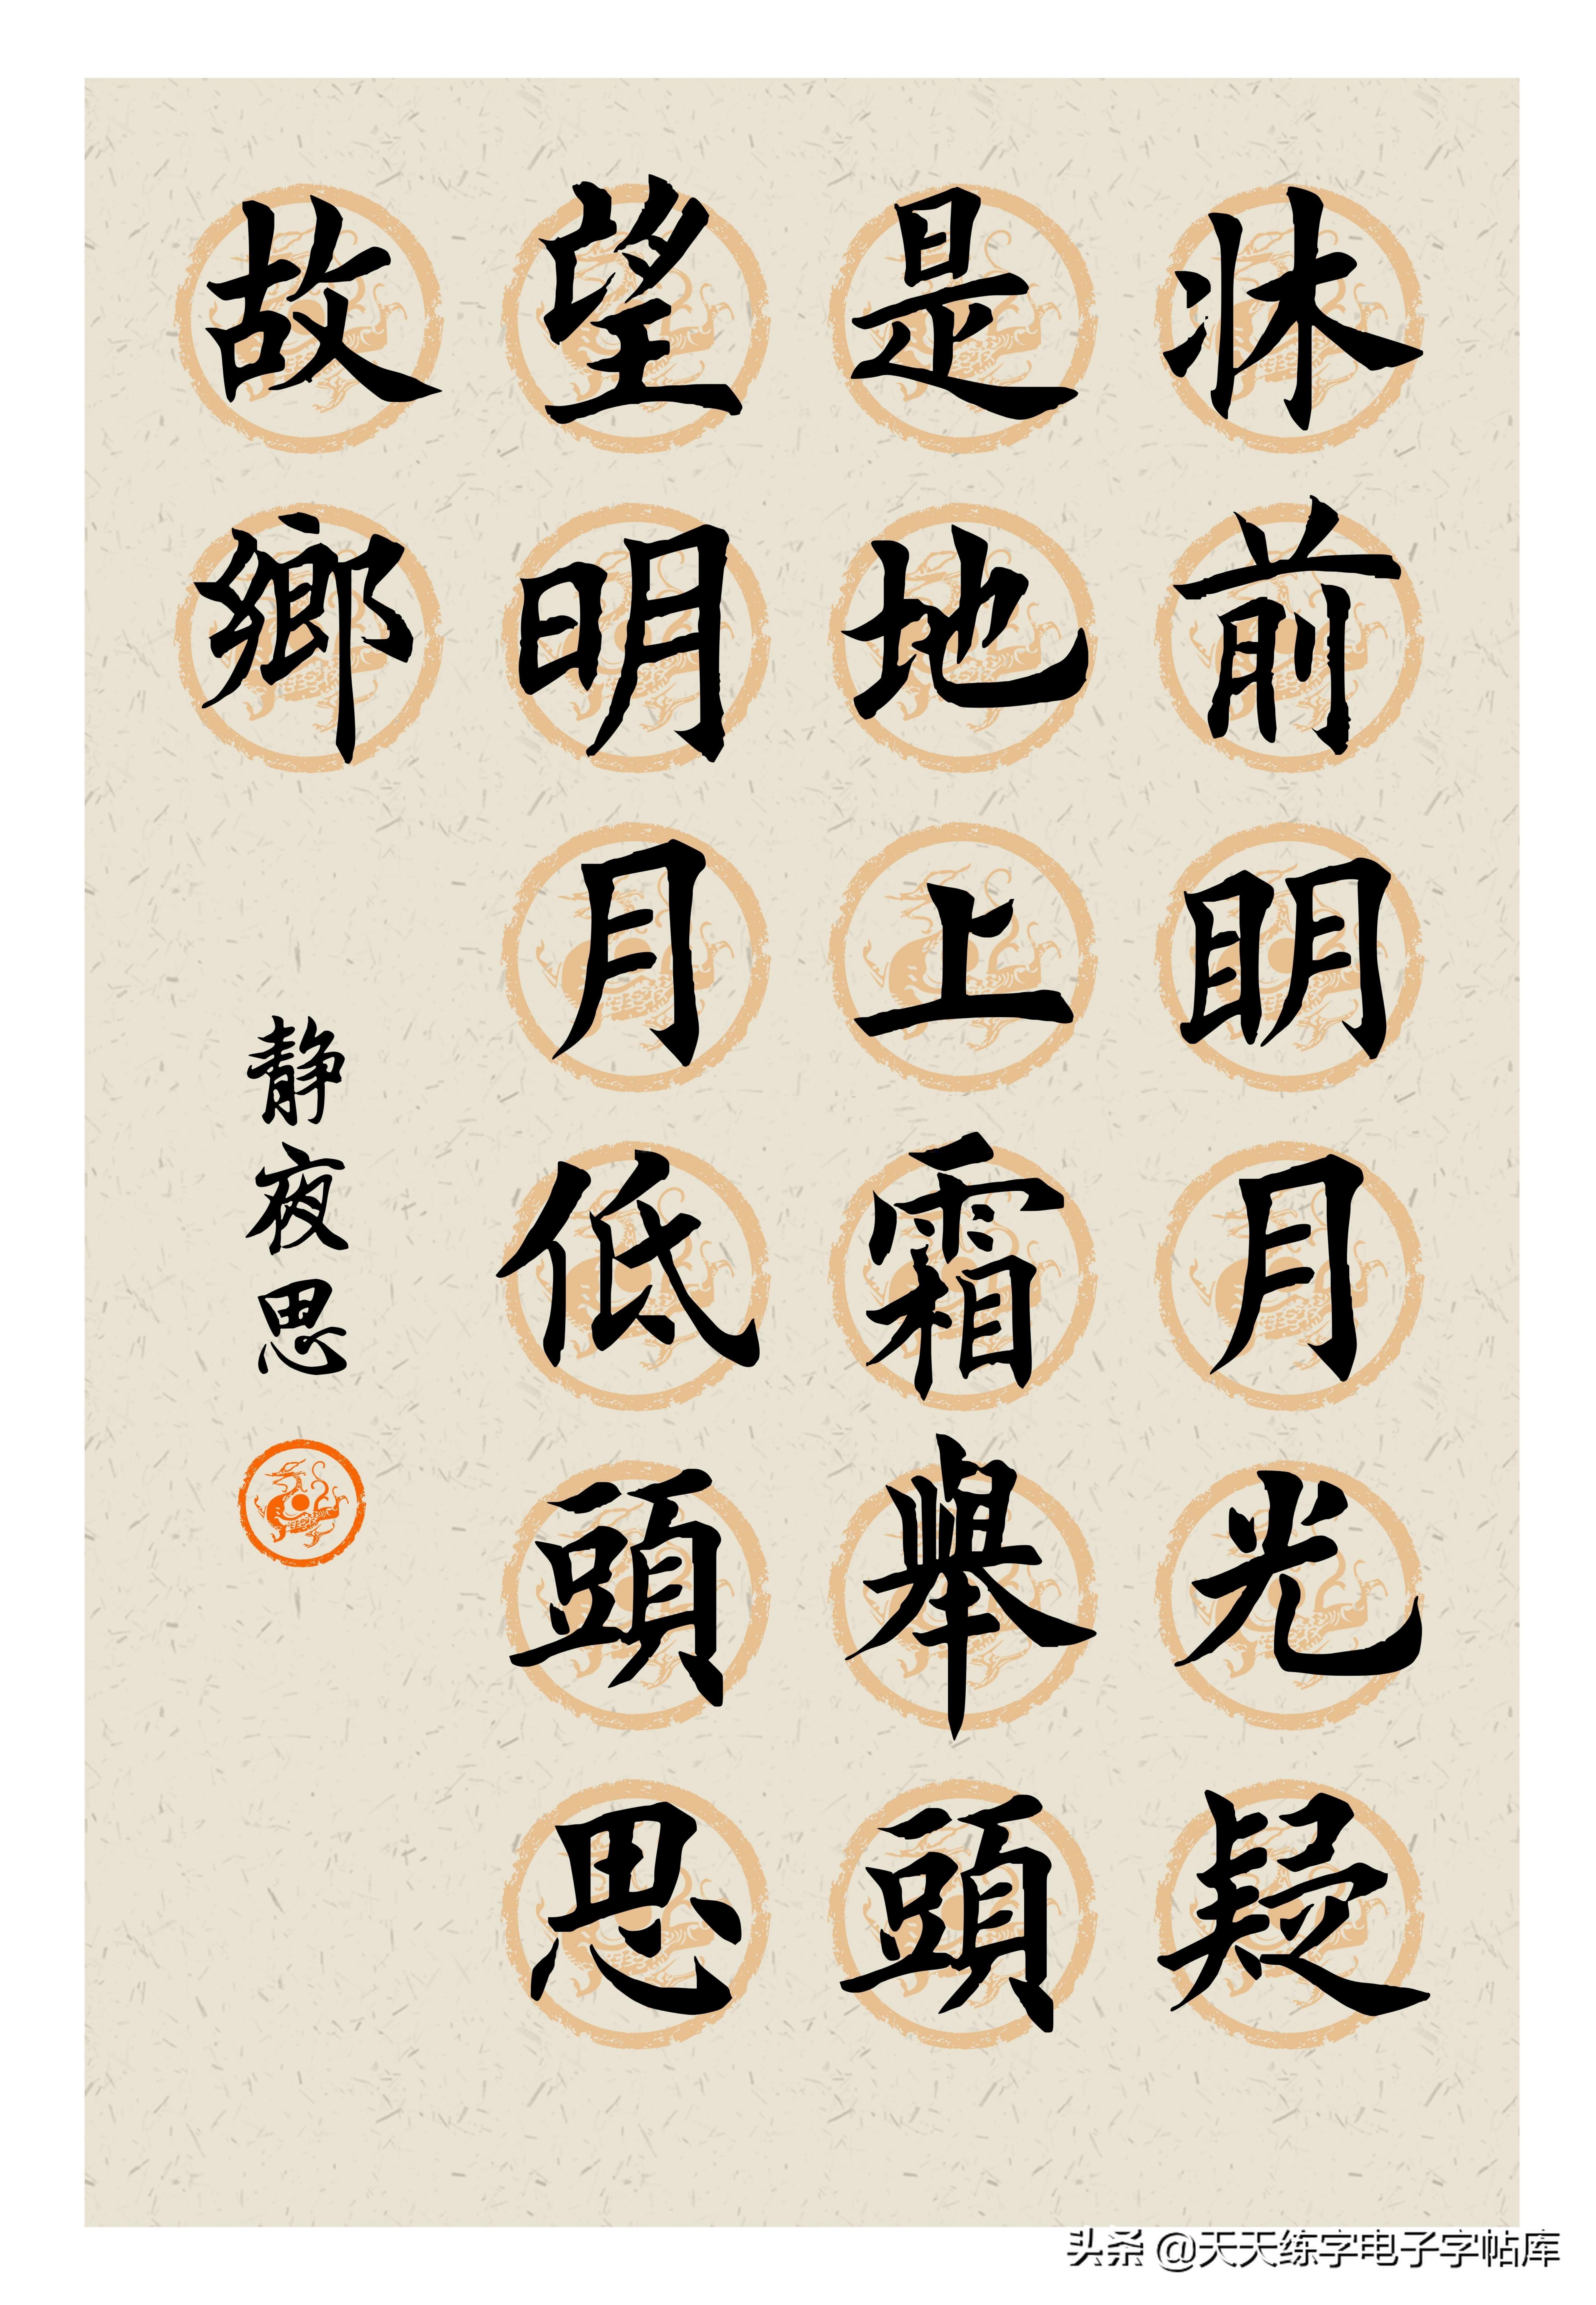 牀前眀月光疑
是地上霜舉頭
望明月低頭思
故鄉
静夜思
头条 @天天练字电子字帖库